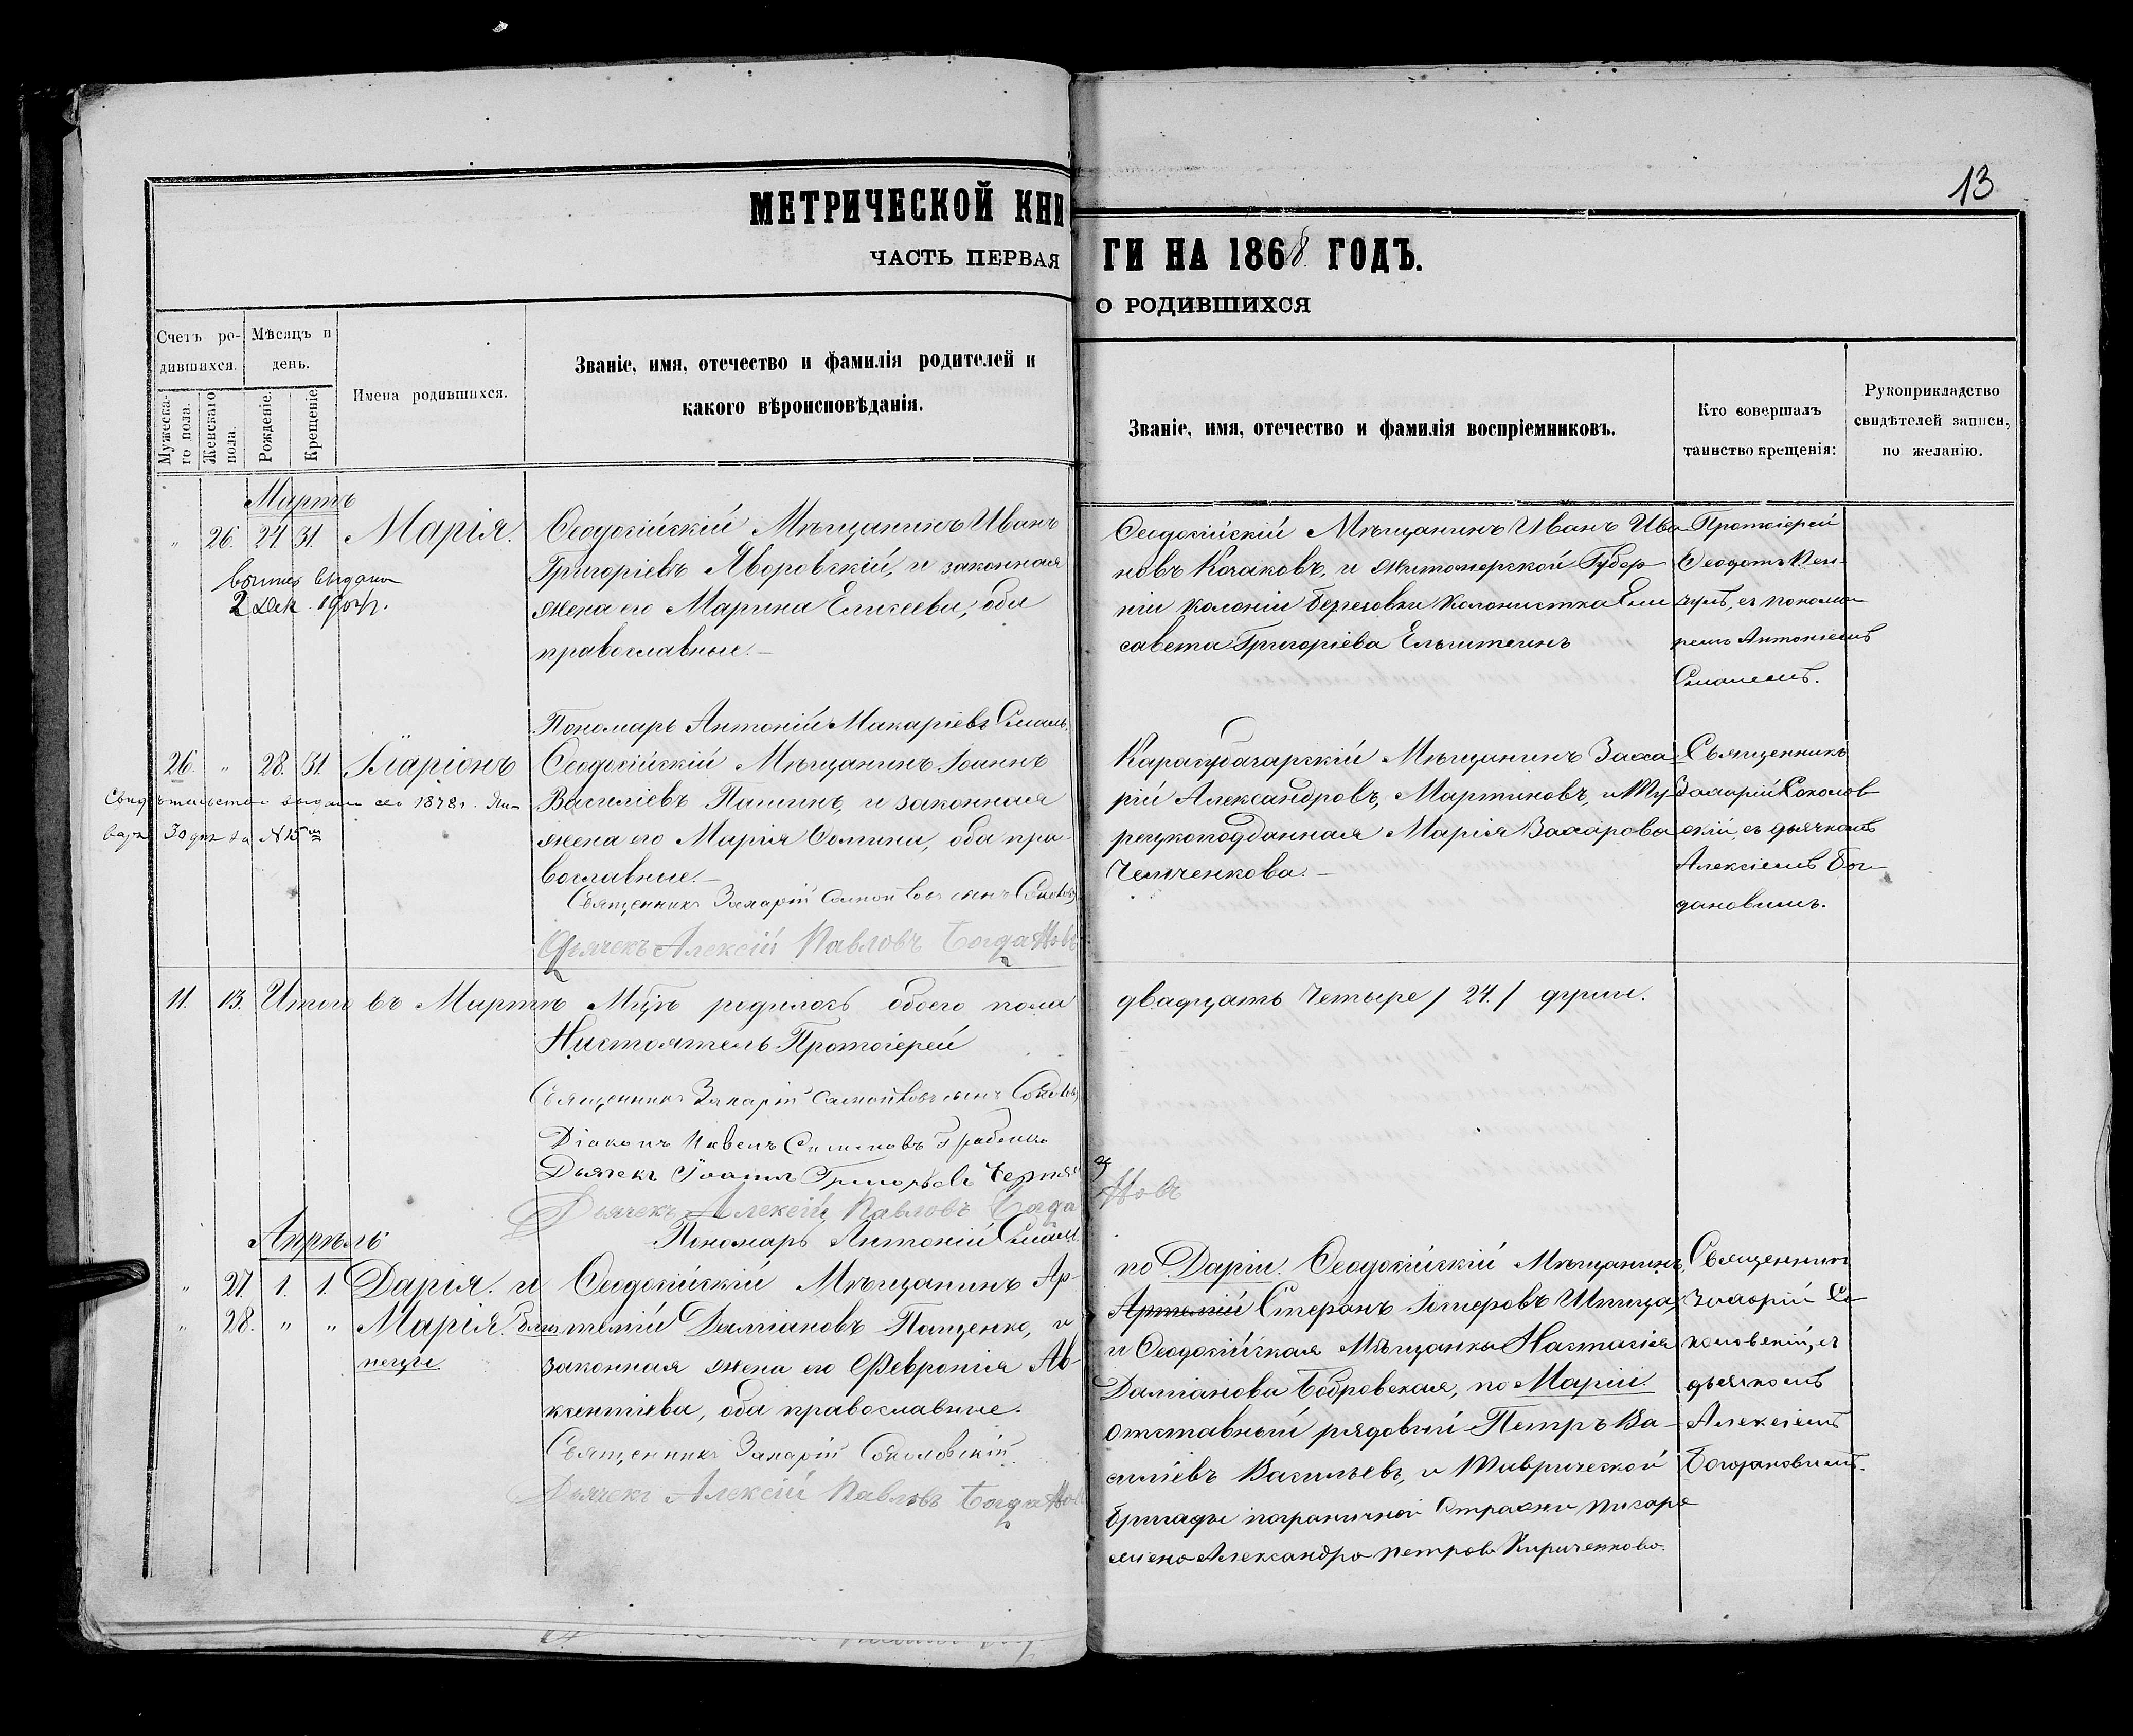 13
МЕТРИЧЕСКОЙ КНИ
ГИ НА 1868. ГОДЪ.
ЧАСТЬ ПЕРВАЯ
О РОДИВШИХСЯ
Счетъ ро-
дившихся.
Мѣсяцъ и
день.
Мужеска-
го пола.
Женскаго
пола.
Рожденіе.
Крещеніе.
Имена родившихся.
Званіе, имя, отечество и фамилія родителей и
какого вѣроисповѣданія.
Званіе, имя, отечество и фамилія воспріемниковъ.
Кто совершалъ
таинство крещенія:
Рукоприкладство
свидѣтелей записи,
по желанію.
Мартъ
„ 26. 24. 31. Марія.
2 Дек.
Ѳеодосійскій Мѣщанинъ Иванъ
Григоріевъ Яворовскій, и законная
жена его Марина Елисеева, оба
православные.—
Пономарь Антоній Макаріевъ
Ѳеодосійскій Мѣщанинъ Иванъ Ива-
новъ Кочаковъ, и Житомерской Губер-
ніи Колоніи Береговки Колонистка Ели-
савета Григоріева
Протоіерей
Ѳеодотъ
съ понома-
ремъ Антоніемъ
26. „ 28. 31. Іларіонъ
Свидѣтельство выдано 1878 г. Ян-
варя 30 дня за № 15
Ѳеодосійскій Мѣщанинъ Іоаннъ
Василіевъ Пашинъ, и законная
жена его Марія Ѳомина, оба пра-
вославные.—
Священникъ Захарій
Дьячекъ Алексій Павловъ Богдановъ
Карасубазарскій Мѣщанинъ Заха-
рій Александровъ, Мартиновъ, и Ту-
рецкоподданная Марія Захарова
Чемченкова.—
Священникъ
Захарій Соколов-
скій, съ дьячкомъ
Алексіемъ Бог-
дановымъ.
11. 13. Итого въ Мартѣ М-цѣ родилось обоего пола
двадцать четыре / 24. / души.
Настоятель Протоіерей
Священникъ Захарій
Діаконъ Павелъ
Дьячекъ Іоаннъ Григорьевъ
Дьячекъ Алексій Павловъ Богда
новъ
Пономарь Антоній
Апрѣль
„ 27. 1. 1. Дарія. и
„ 28. „ „ Марія. Близ-
нецы
Ѳеодосійскій Мѣщанинъ Ар-
темій Даміановъ Пащенко, и
законная жена его Февронія Ав-
ксентіева, оба православные.
Священникъ Захарій Соколовскій
Дьячекъ Алексій Павловъ Богданов
по Даріи. Ѳеодосійскій Мѣщанинъ
Артемій Стефанъ
и Ѳеодосійская Мѣщанка Настасія
Даміанова Бобровская, по Маріи
отставный рядовый Петръ Ва-
силіевъ Васильевъ, и Таврической
бригады пограничной Стражи писаря
жена Александра Петрова Кириченкова.
Священникъ
Захарій Со-
коловскій, съ
дьячкомъ
Алексіемъ
Богдановымъ.